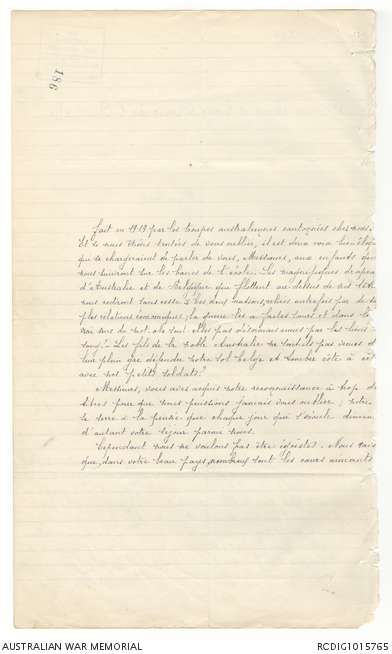 186
fait en 1919 par les troupes australiennes cantonnées chez nous.
Et si nous étions tentées de vous oublier, il est deux voix bien éloq
qui se chargeraient de parler de vous, Messieurs, aux enfants qui
nous suivront sur les bancs de l'école. Les magnifiques drapea
d'Australie et de Belgique qui flottent au-dessus de nos têtes
nous rediront sans cesse : "Les deux nations, reliées autrefois par de si
plus relations économiques, la guerre les a faites sœurs et dans la
mot, elles sont elles pas désormais unies par les liens
sang? Les fils de la noble Australie ne sont-ils pas venus et
leur plein gré défendre notre sol belge et tomber côte à côt
avec nos petits soldats?"
Messieurs, vous avez acquis notre reconnaissance à trop de
titres pour que nous puissions jamais vous oublier; notre
se serre à la pensée que chaque jour qui s'écoule diminu
d'autant votre séjour parmi nous.
Cependant nous ne voulons pas être égoïstes. Nous sav
que, dans votre beau pays, nombreux sont les cœurs aimants
AUSTRALIAN WAR MEMORIAL
RCDIG1015765